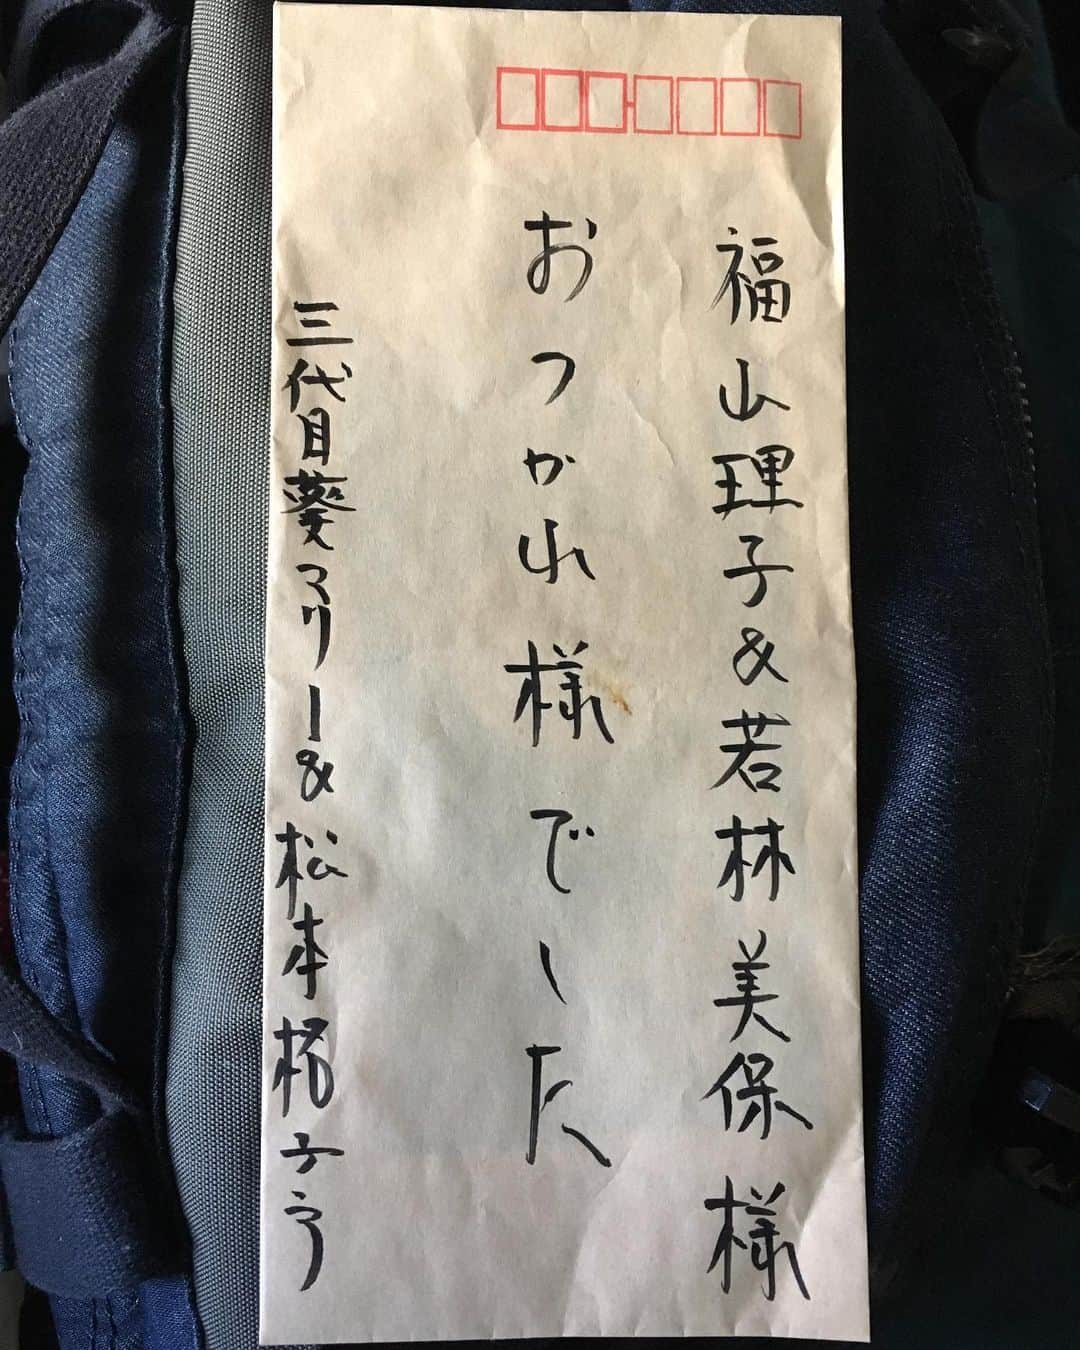 福山理子&若林美保様
おつかれ様でした
三代目葵マリー&松本格子戸